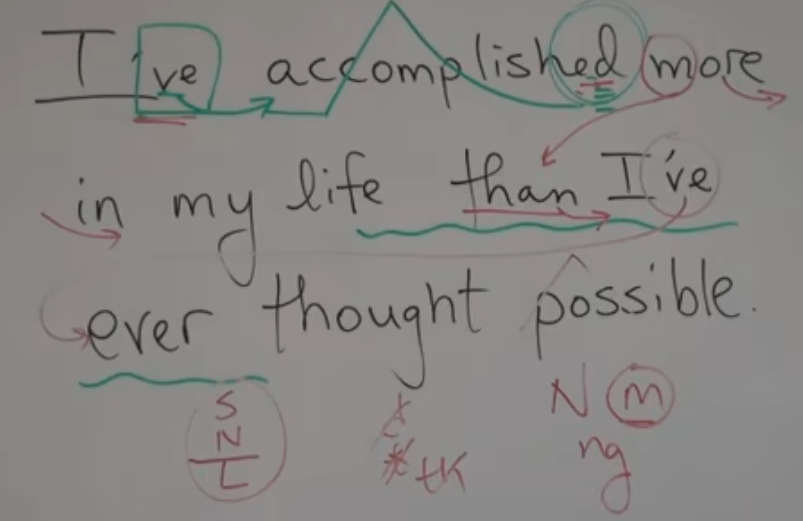 I've accomplished more
in my life than I've
ever thought possible.
S
N
L
tK
N m
ng